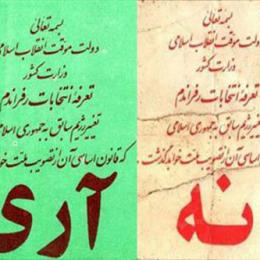 بسمه تعالی
دولت موقت انقلاب اسلامی
وزارت کشور
تعرفه انتخابات رفراندم
تغییر رژیم سابق به جمهوری اسلامی
که قانون اساسی آن از تصویب ملت خوا
آری
بسمه تعالی
دولت موقت انقلاب اسلامی
وزارت کشور
تعرفه انتخابات رفراندم
تغییر رژیم سابق به جمهوری اسلامی
اساسی آن از تصویب ملت خواهد گذشت
نه